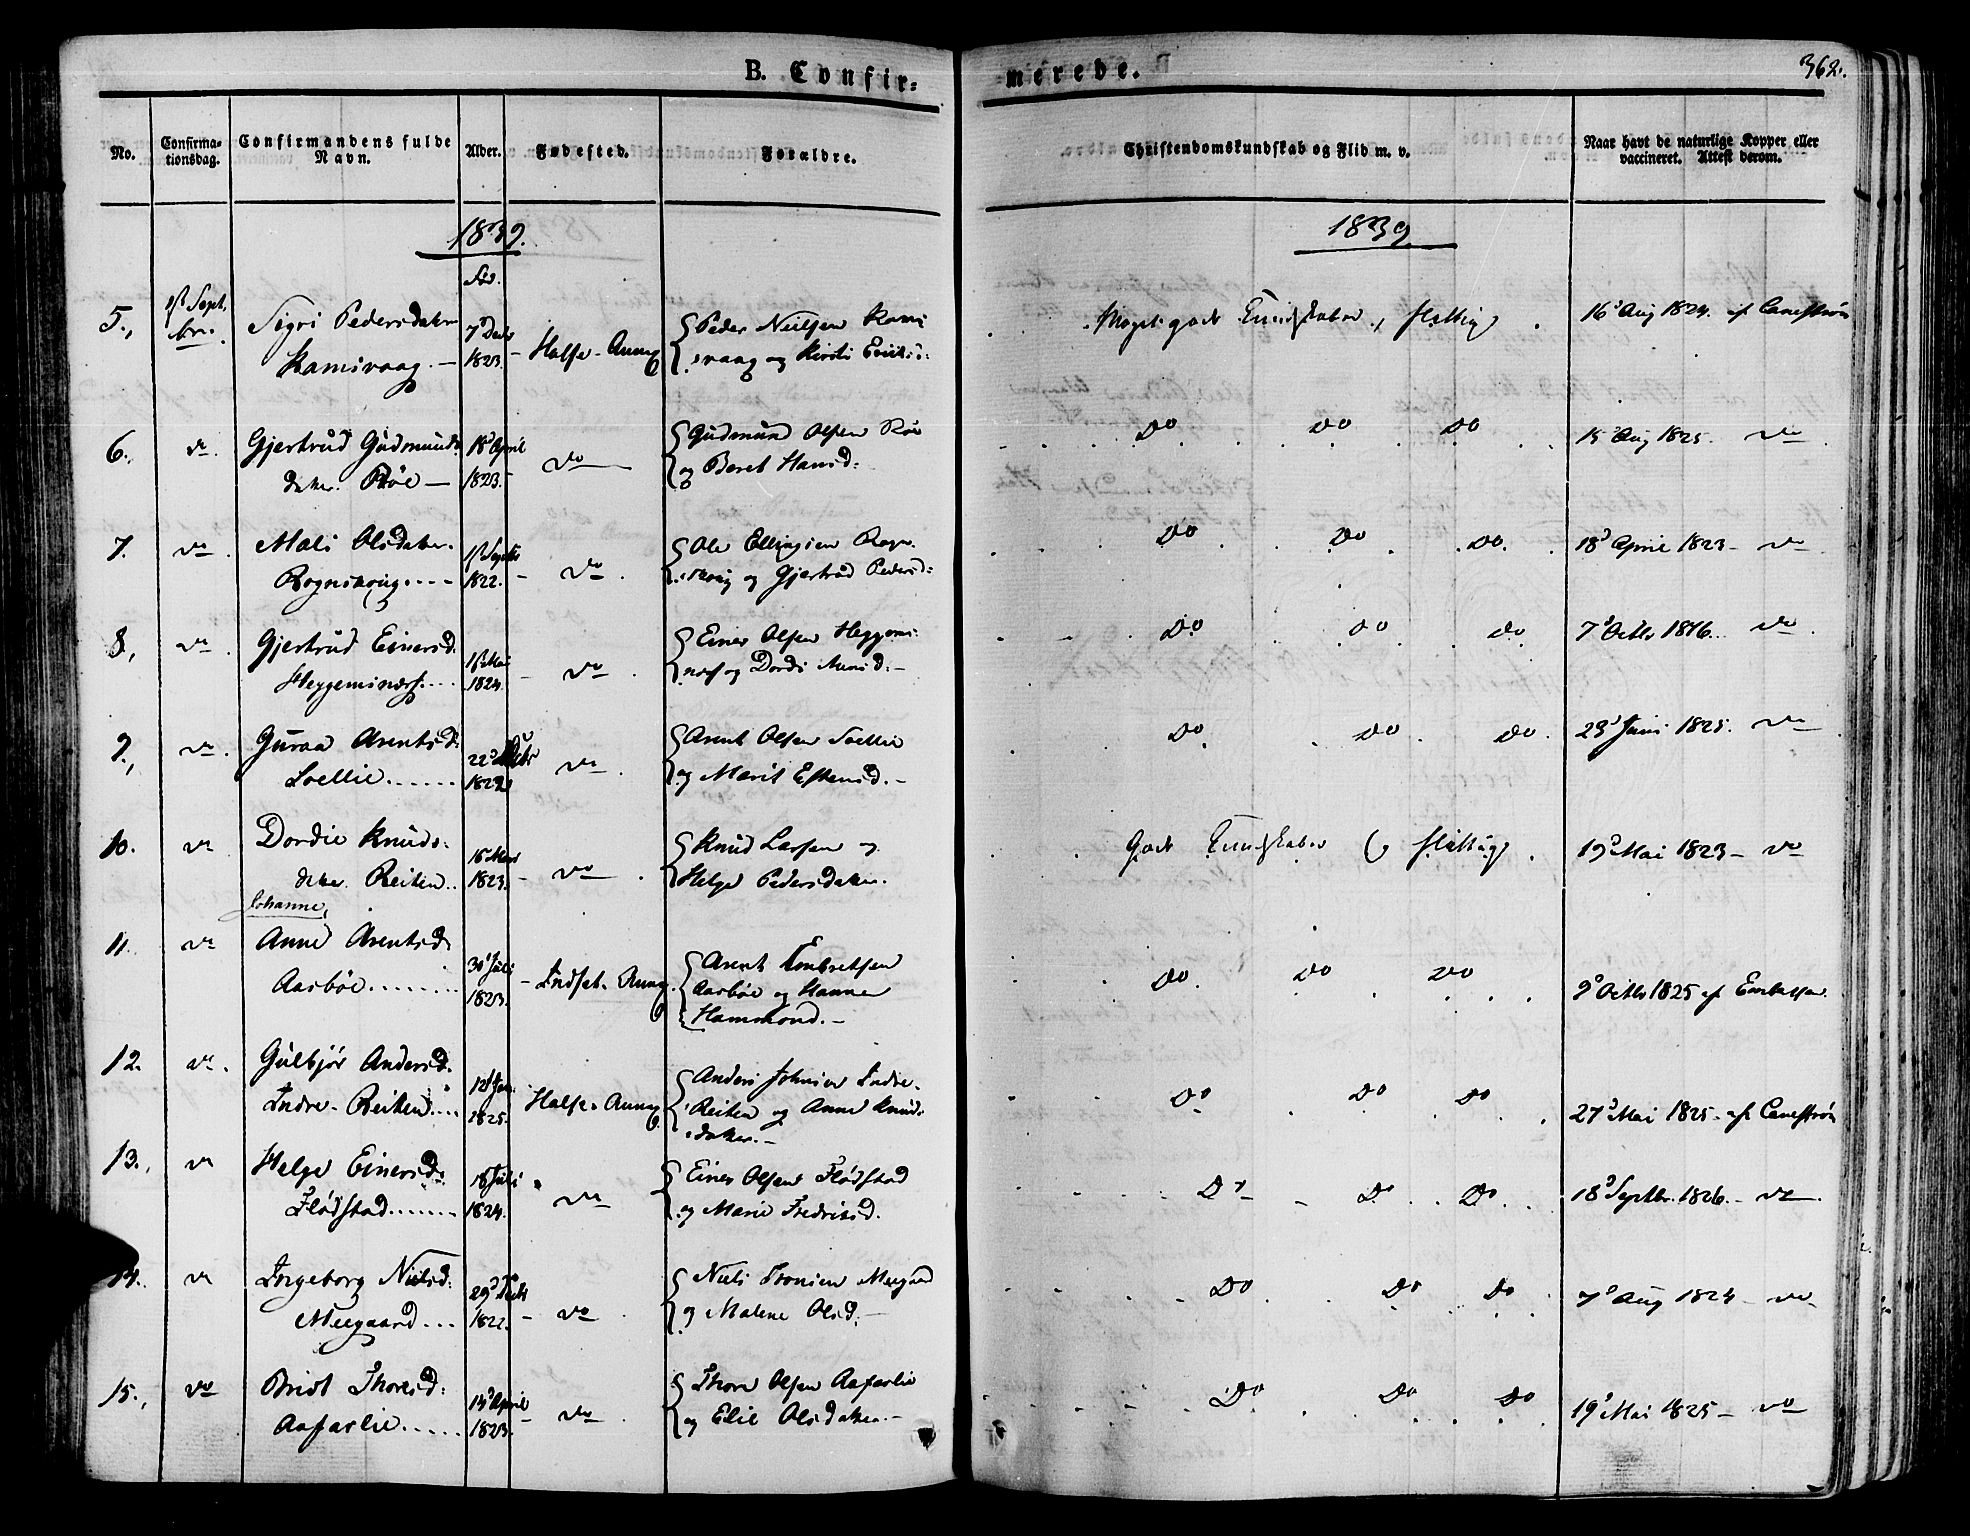 B. Confir-
merede.
362.
No.
Confirma-
tionsdag.
Confirmandens fulde
Navn.
Alder.
Fødested.
Forældre.
Christendomskundskab og Flid m. v.
Naar havt de naturlige Kopper eller
vaccineret. Attest derom.
1839.
1839
Fød.
5., 1st Sept.
Sigri Pedersdatter
7d Decbr
1823. – Halse-Annex
Peder Nielsen
og Kirsti
Meget gode Kundskaber, flittig
16d Aug 1824. af
6. do. Gjertrud Gudmunds
datter. Böe —
18d April
1823. – do
Gudmund Olsen Röe
og Beret Hansd:
Do Do Do
15d Aug 1825. do
7. do. Mali Olsdatter.
Rognskoug....
1st Septbr
1822. – do.
Ole Ellingsen Rogn-
skoug og Gjertrud Pedersd:
Do Do Do.
18d April 1823 – do
8, do. Gjertrud Einersd.
Heggemsnæs....
1st Mai
1824. – do.
Einer Olsen Heggems-
næs og Dordi
Do Do Do
7d Octbr 1816. do.
9., do. Guraa Arentsd:
Loellie......
22d
do.
Arent Olsen Loellie
og Marit Estensd.–
Do Do Do
23d Juni 1825. do
10. do Dordie Knuds-
datter Reiten..
1823. – do.
Knud Larsen og
Helge Pedersdatter.
Gode Kundskaber og flittig.
19d Mai 1823 – do
Johanne,
11. do Anne Arentsd
Aasböe........
30d Juli
1823. – Indset-Annex.
Arent Embretsen
Aasböe og Hanna
Hammond.–
Do Do Do
9d Octbr 1825 af
12. do. Gulbjör Andersd.
Indre-Reiten....
12d Jan.
1825. Halse-Annex
Anders Johnsen Indre-
Reiten og Anne Knuds-
datter.–
Do Do Do
27d Mai 1825. af
13., do Helge Einersd.
Flödstad.......
18d Juli
1824. do
Einer Olsen Flödstad
og Marie Fredriksd.
Do Do Do
18d Septbr. 1826 – do.
14. do Ingeborg Nielsd.
Meegaard...
29d
1822. – do.
Niels Tronsen Meegaard
og Malene Olsd.–
Do Do Do
7d Aug 1824 – do.
15., do Bridt Thoresd:
Aafarlie.....
14d April
1823. – do.
Thore Olsen Aafarlie
og Elie Olsdatter.–
Do Do Do
19d Mai 1825 – do